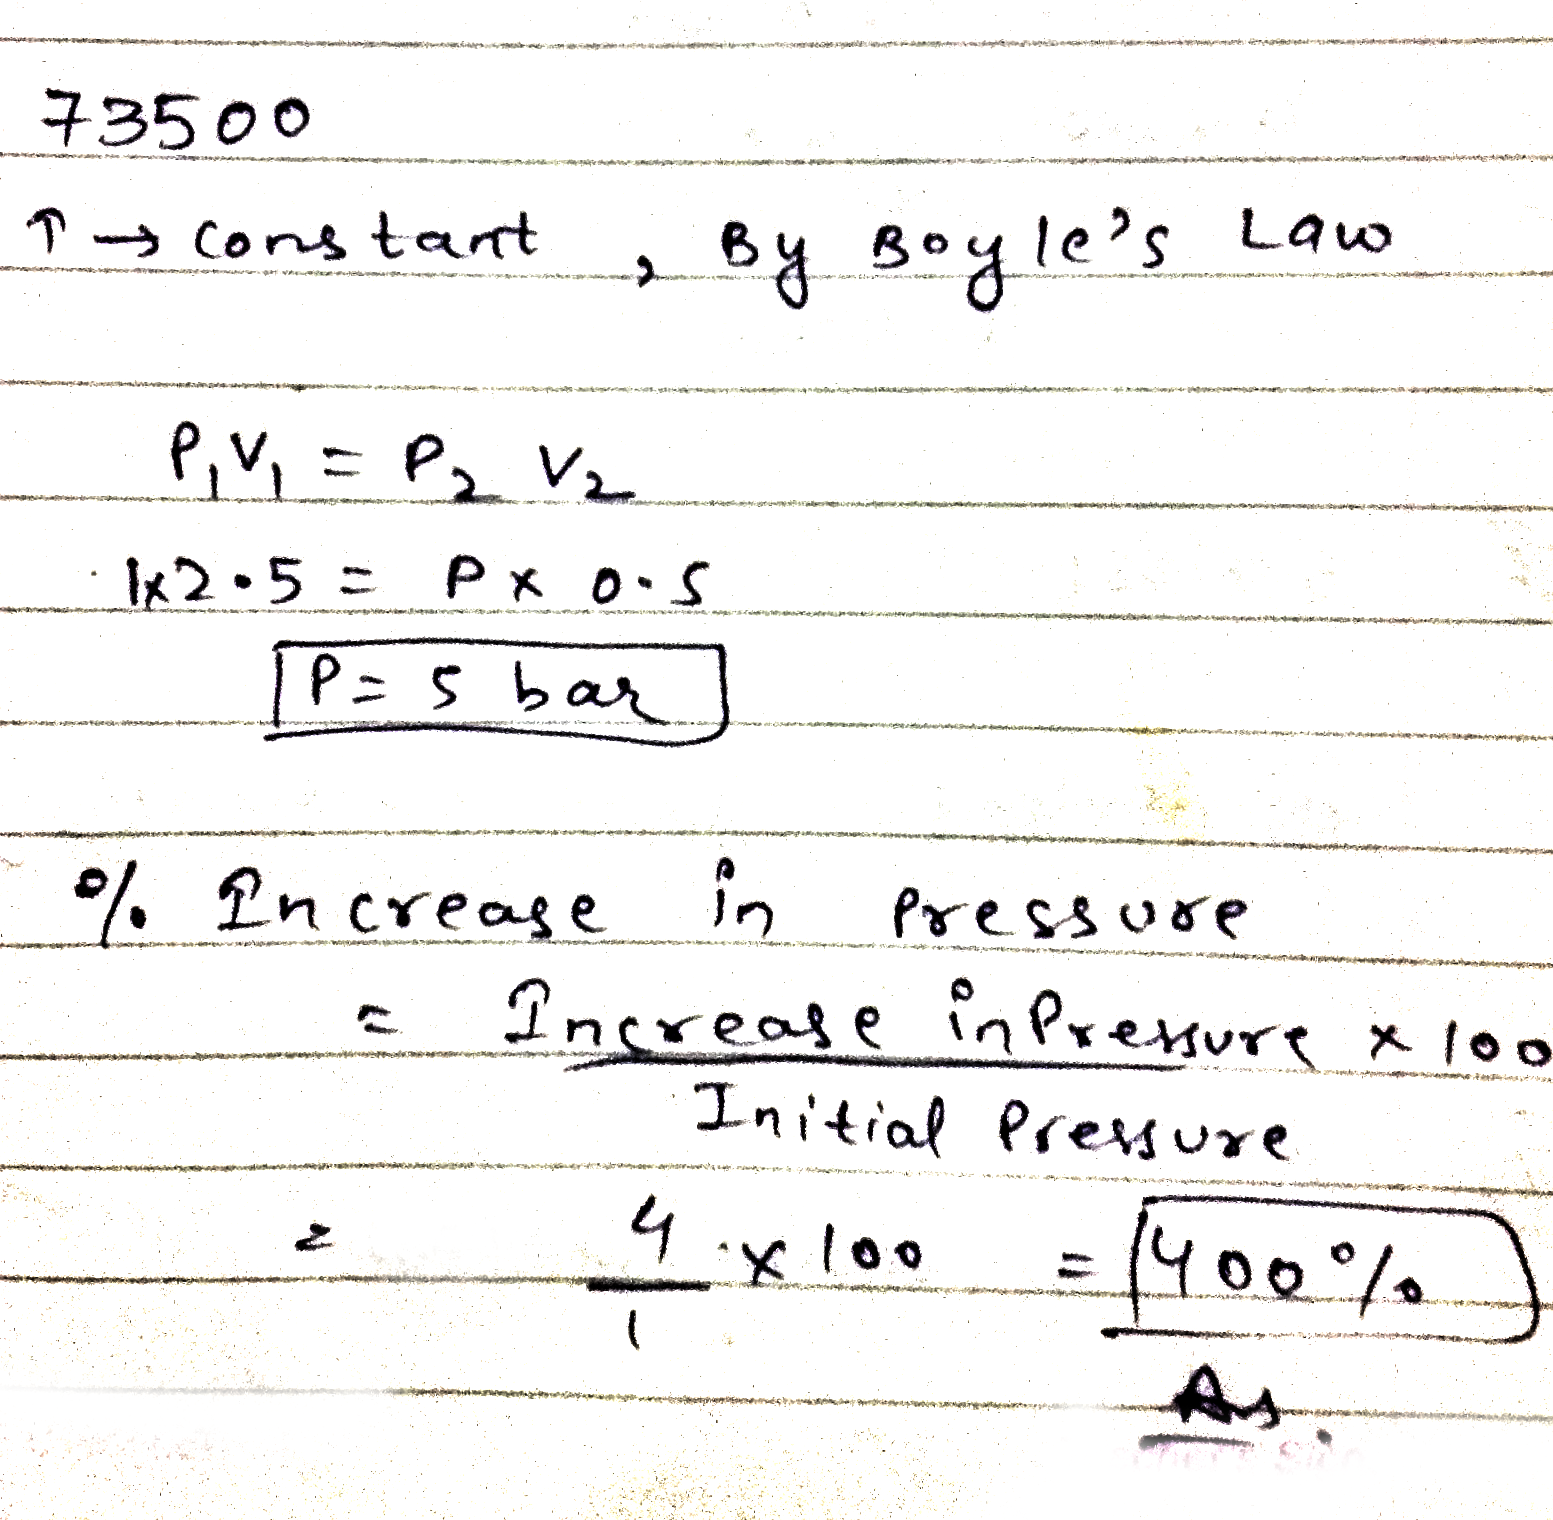 73500
T → constant , By Boyle's Law
P₁V₁ = P₂ V₂
1x2.5 = P x 0.5
P = 5 bar
% Increase in Pressure
= Increase in Pressure x 100
Initial Pressure
= 4 x 100 = 400%
1
Ans.